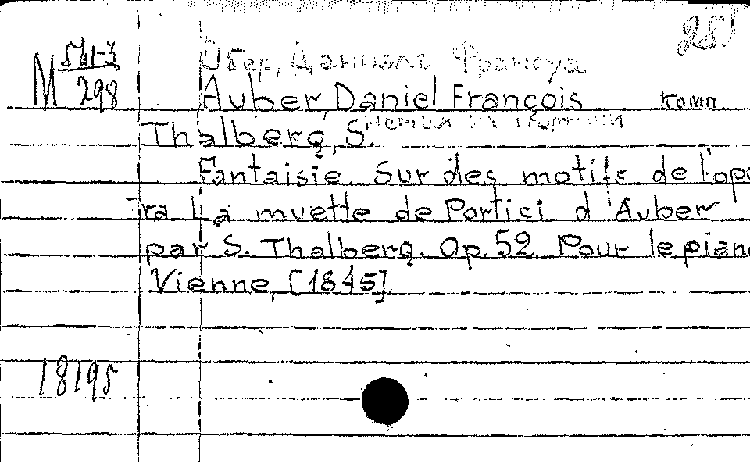 251
М 561-3
298
Обер, Даниель Франсуа
Auber, Daniel François комп
Thalberg, S.
Fantaisie sur des motifs de l'opé
ra La muette de Portici d'Auber
par S. Thalberg. Op. 52. Pour le piano
Vienne, [1845]
18195